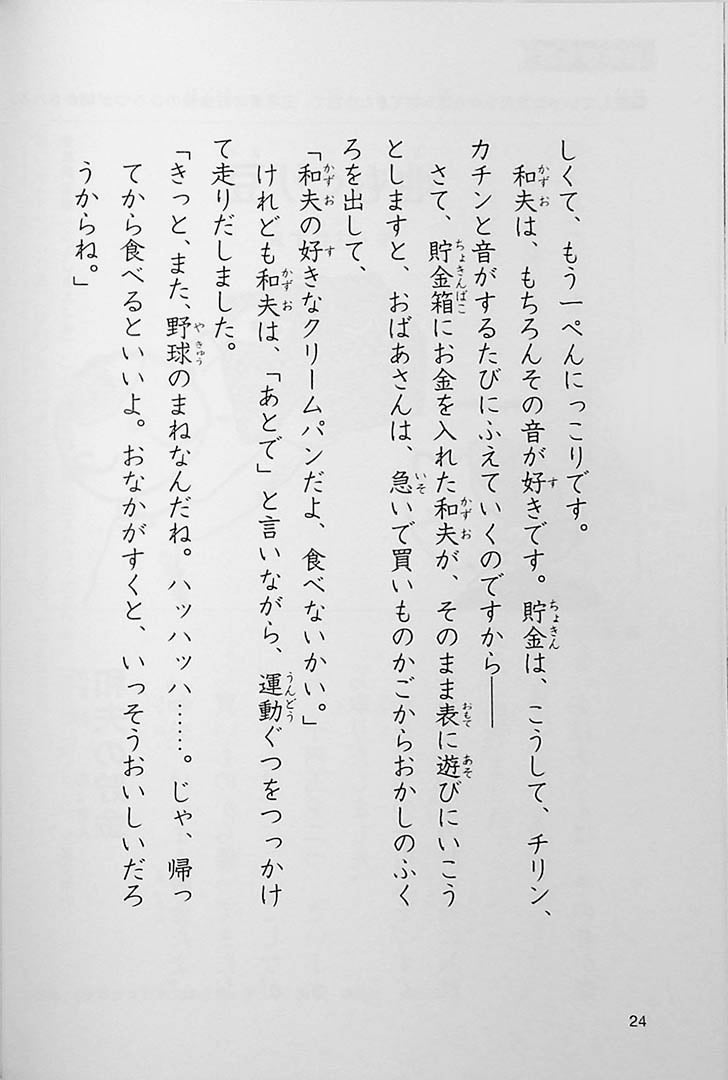 しくて、もう一ぺんにっこりです。
和夫は、もちろんその音が好きです。貯金は、こうして、チリン、
カチンと音がするたびにふえていくのですから――
さて、貯金箱にお金を入れた和夫が、そのまま表に遊びにいこう
としますと、おばあさんは、急いで買いものかごからおかしのふく
ろを出して、
「和夫の好きなクリームパンだよ、食べないかい。」
けれども和夫は、「あとで」と言いながら、運動ぐつをつっかけ
て走りだしました。
「きっと、また、野球のまねなんだね。ハッハッハ……。じゃ、帰っ
てから食べるといいよ。おなかがすくと、いっそうおいしいだろ
うからね。」
24